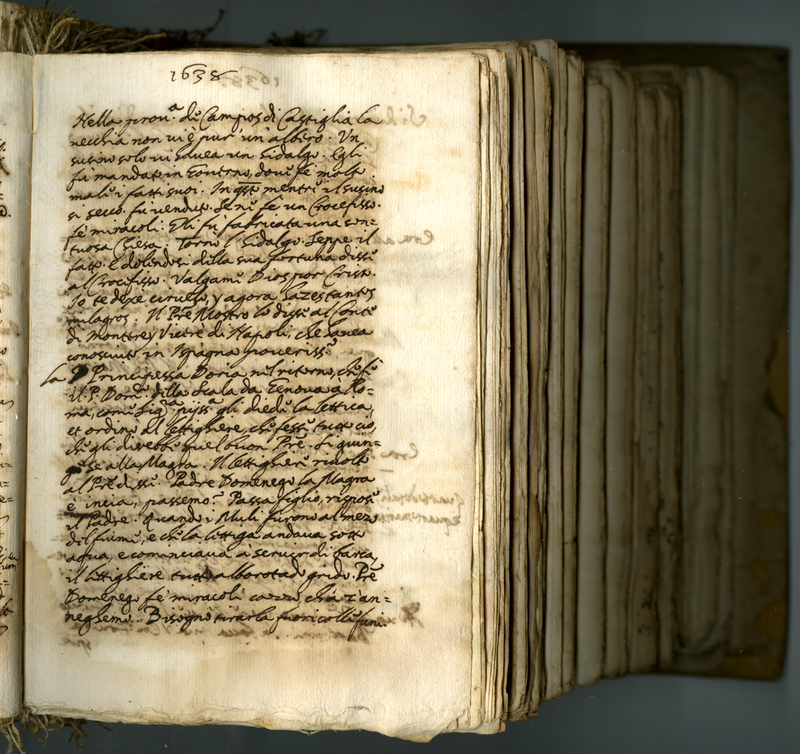 1638
Nella prou.ª di Campos di Castiglia la
uecchia non ui è pur' un albero. Un
susino solo ui haueua un Fidalgo. Egli
fu mandato in Gouerno, doue fe molto
mali i fatti suoi. In qsto mentre il susino
si seccò. fù uenduto. Se ne fè un Crocefisso.
fè miracoli. Gli fu fabricata una son=
tuosa Chiesa. Tornò l' Fidalgo. Seppe il
fatto. E dolendosi della sua fortuna disse
al Crocifisso. Valgami Dios por Cristo.
Io te dexè ciruelo, y agora hazes tantos
milagros. Il Pre Nostro lo disse al Conte
di Monterey Vicerè di Napoli, che l'auea
conosciuto in Ispagna pouerissº
la Principessa Doria nel ritorno, che fè
il P. Domº della Scala da Genoua à Ro=
ma, come Sigª pijssª gli diede la lettica,
et ordinò al lettighiere, che fesse tutto ciò,
che gli direbbe quel buon Pre. Si giun=
se alla Magra. Il lettighiere riuolto
al Pre disse. Padre Domenego la Magra
è incia, passemo? Passa figlio, rispose
il Padre. Quando i Muli furono al mezo
del fiume, e che la lettiga andaua sotto
acqua, e cominciaua a seruir di barca,
il lettighiere tutto alborotado gridò. Pre
Domenego fè miracoli cazzo, che z'an=
neghemo. Bisognò tirarla fuori colle funi.